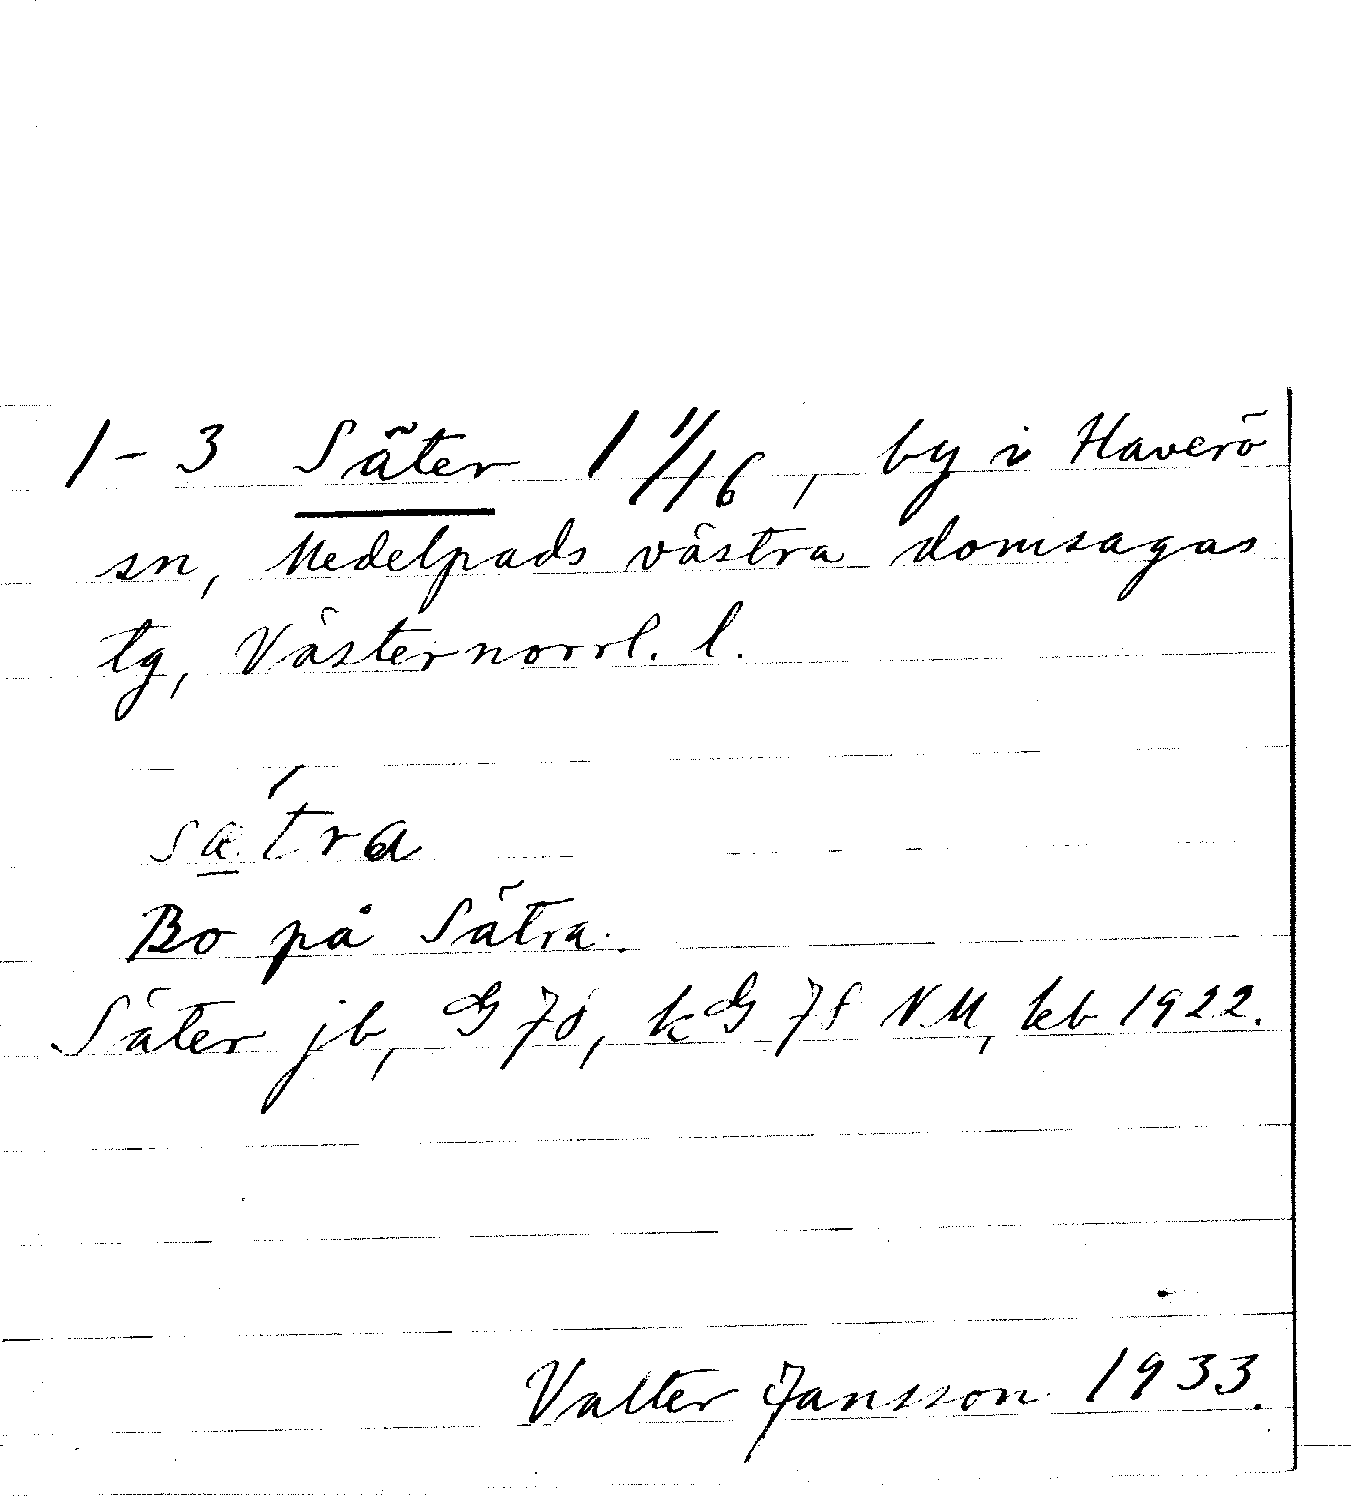 1-3 Säter 1 1/16, by i Haverö
sn, Medelpads västra domsagas
tg, Västernorrl. l.
sæ´tra
Bo på Sätra.
Säter jb, G 78, kG 78 NM, kb 1922.
Valter Jansson 1933.